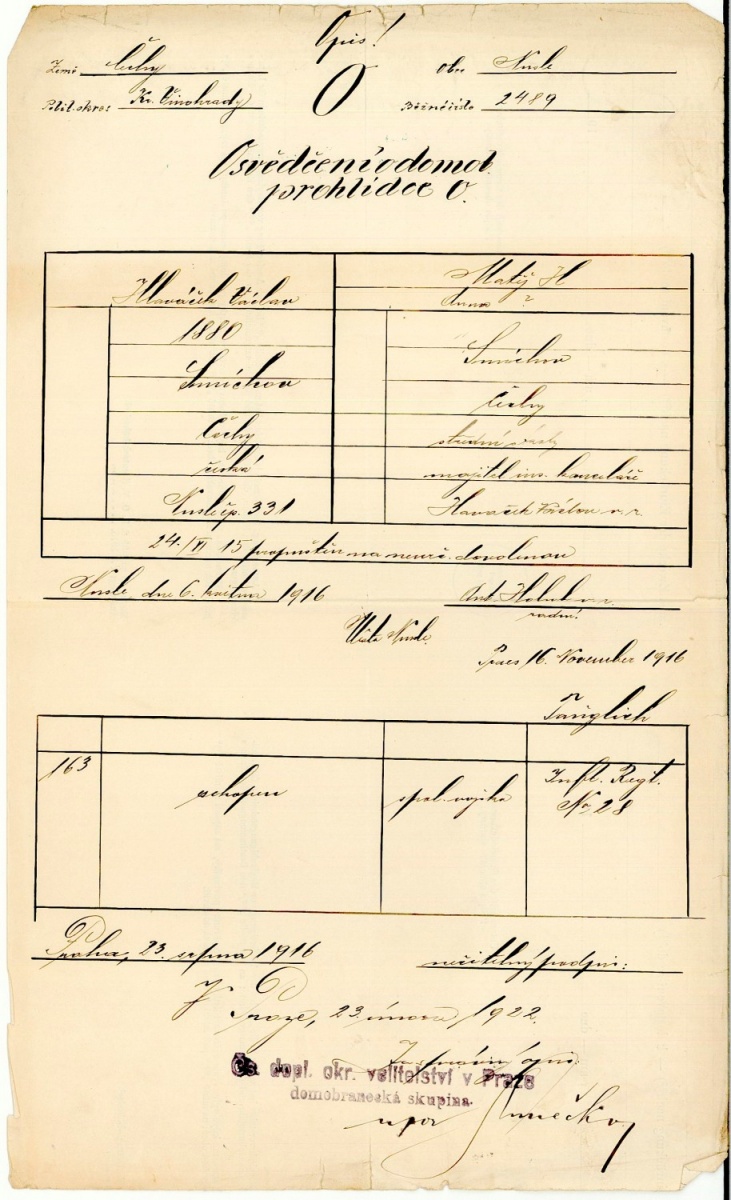 Opis!
Země Čechy
O
Obec Nusle
Polit. okres Kr. Vinohrady
Běžné číslo 2489
Osvědčení o domob.
prohlídce O.
Hlaváček Václav
Matěj H
Anna ?
1880
Smíchov
Smíchov
Čechy
Čechy
česká
majitel inž. kanceláře
Nusle čp. 331
Hlaváček Václav v. r.
24./VI 15 propuštěn na neurč. dovolenou
Nusle, dne 6. května 1916
Ant. Holub v. r.
radní.
Nusle.
16. November 1916
163
schopen
spol. vojska
Inft. Regt.
No 28
Praha, 23. srpna 1916
nečitelný podpis:
V Praze, 23. února 1922.
Čs. dopl. okr. velitelství v Praze
domobranecká skupina.